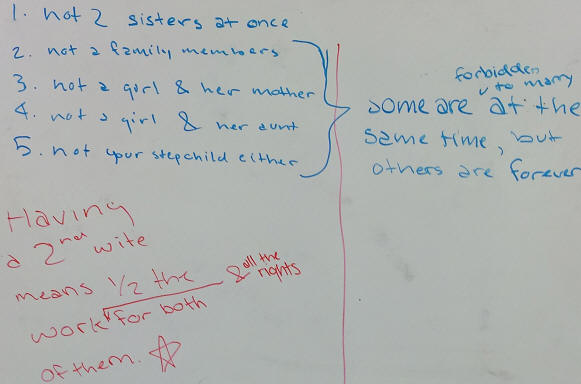 1. not 2 sisters at once
2. not a family members
3. not a girl & her mother
4. not a girl & her aunt
5. not your stepchild either
forbidden
to marry
some are at the
same time, but
others are forever
Having
a 2nd wife
means 1/2 the & all the rights
work for both
of them.